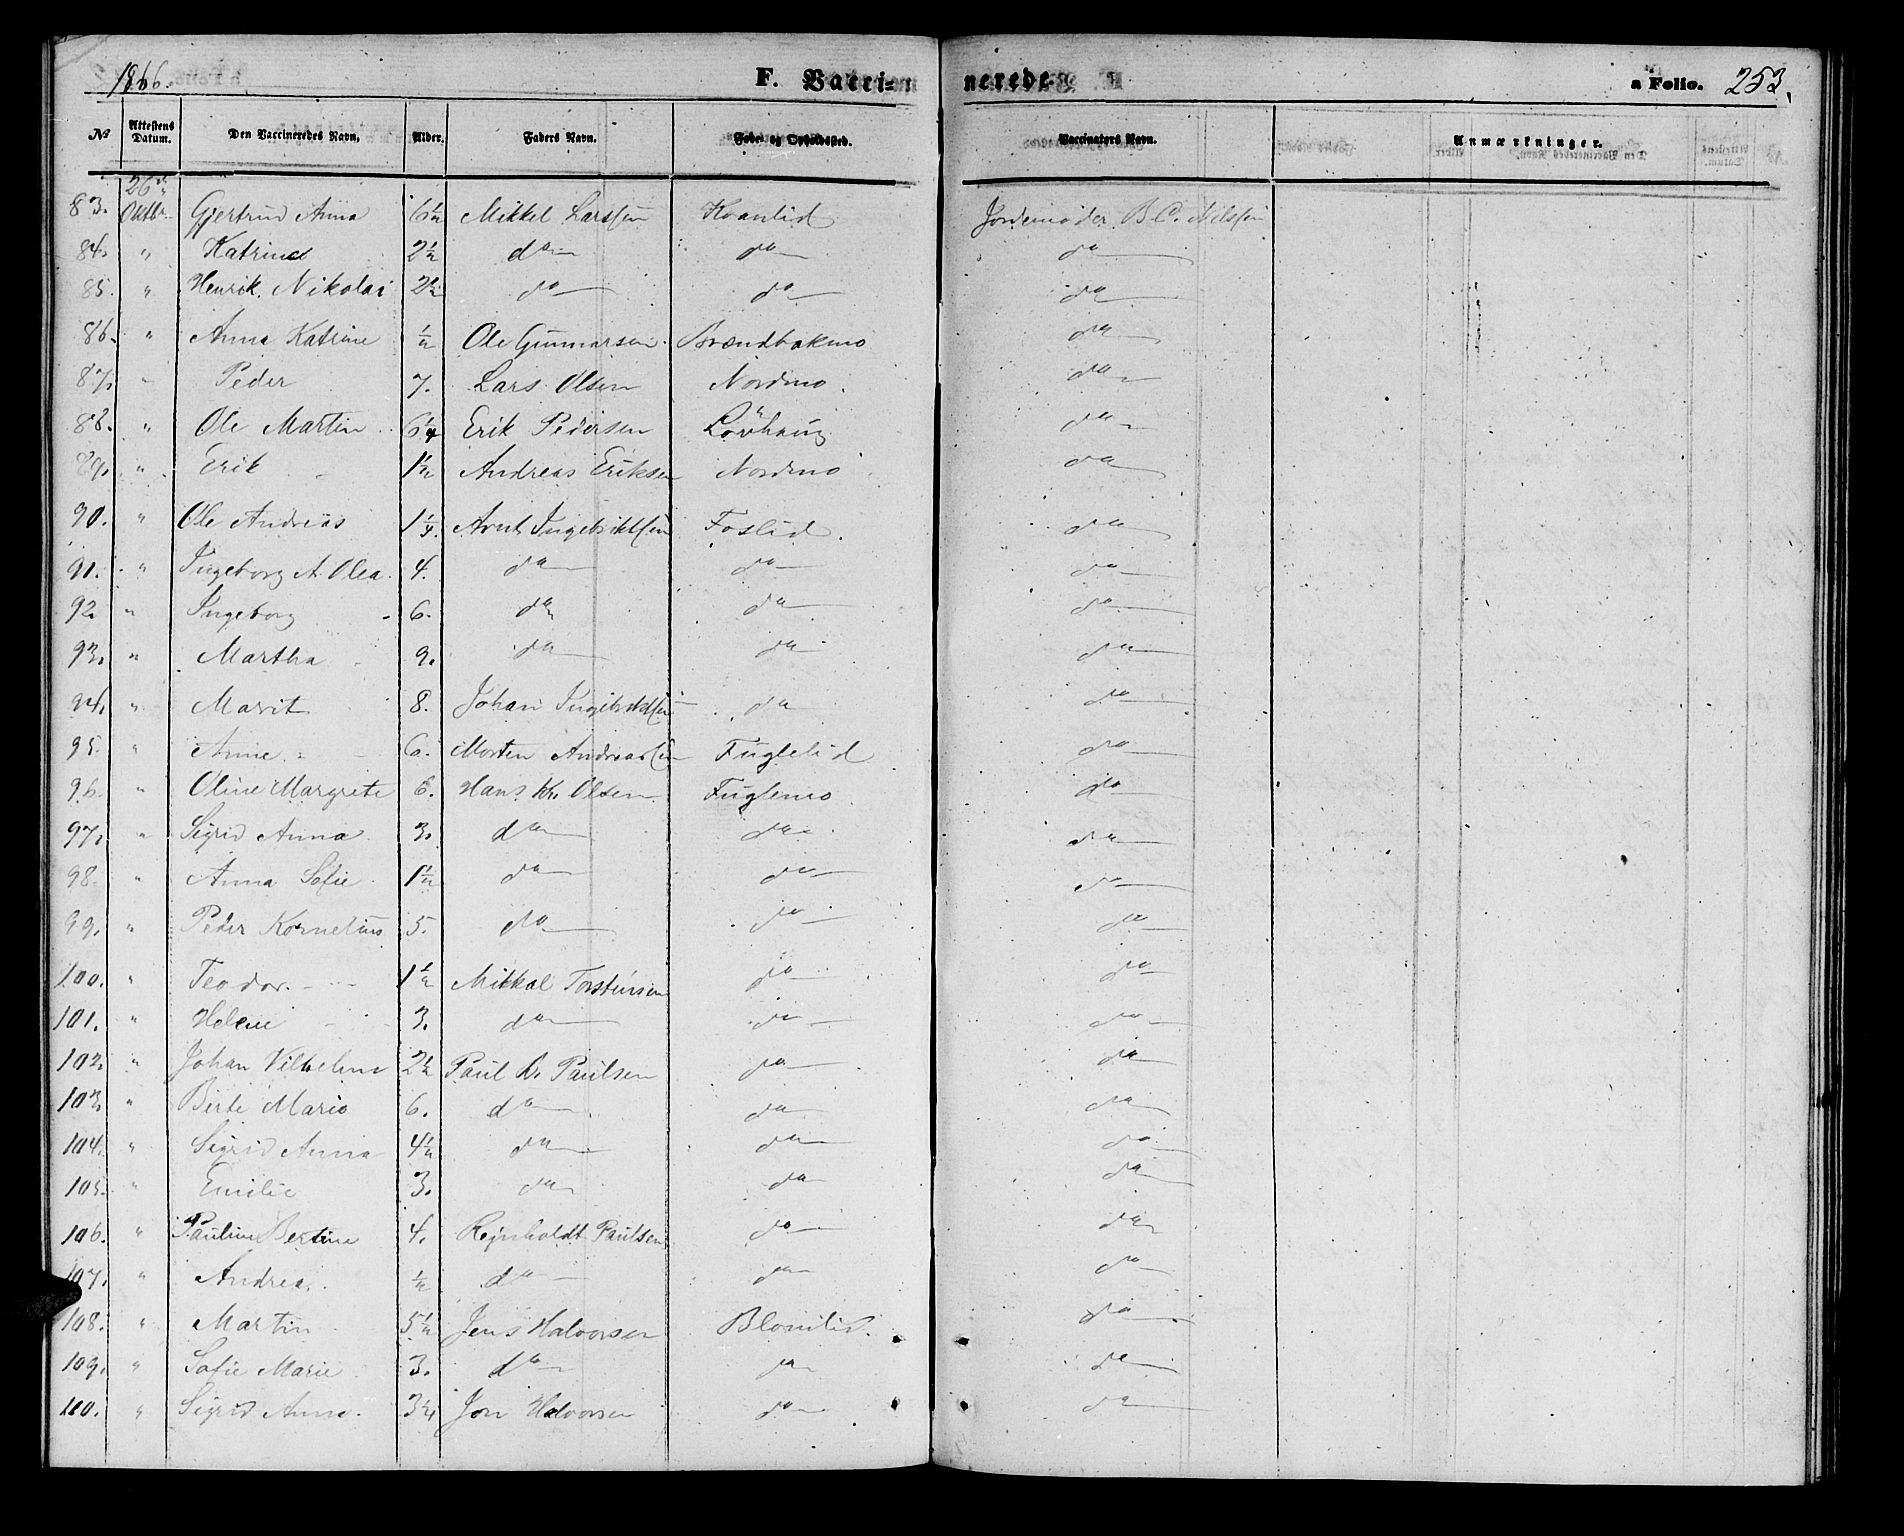 1866. F. Vacci- nerede. a Folio. 253.
No Attestens Datum. Den Vaccineredes Navn. Alder. Faders Navn. Føde- og Opholdssted. Vaccinators Navn. Anmærkninger.
83. 26de Oktbr. Gjertrud Anna 6½ Mikkel Larssen Kvanlid Jordemoder B. C. Nilssen
84. " Katrine 2½ do do do
85. " Henrik Nikolai 2½ do do do
86. " Anna Katrine ½ Ole Gunnarsen Brændbakmo do
87. " Peder 7. Lars Olsen Nordmo. do
88. " Ole Martin 6¼ Erik Pedersen Lövhaug do
89. " Erik 1½ Andreas Eriksen Nordmo do
90. " Ole Andreas 1¼. Arnt Ingebriktsen Foslid. do
91. " Ingeborg A. Olea. 4. do do do
92 " Ingeborg 6. do do do
93. " Martha 9. do do do
94. " Marit 8. Johan Ingebriktsen do do
95. " Anne 6. Morten Andreassen Fuglelid do
96. " Oline Margrete 6. Hans Kr. Olsen Fuglemo do
97. " Sigrid Anna 3. do do do
98. " Anna Sofie 1½ do do do
99. " Peder Kornelius 5. do do do
100. " Teodor. 1½ Mikkal Torstensen do do
101. " Helene 3. do do do
102. " Johan Vilhelm 2½ Paul Paulsen do do
103. " Berte Marie 6. do do do
104. " Sigrid Anna 4½ do do do
105. " Emilie 3. do do do
106. " Pauline Bertine 4. Rejnholdt Paulsen do do
107. " Andrea. ½ do do do
108. " Martin 5½ Jens Halvorsen do
109. " Sofie Marie 3. do do do
110. " Sigrid Anna. Jon Halvorsen do do